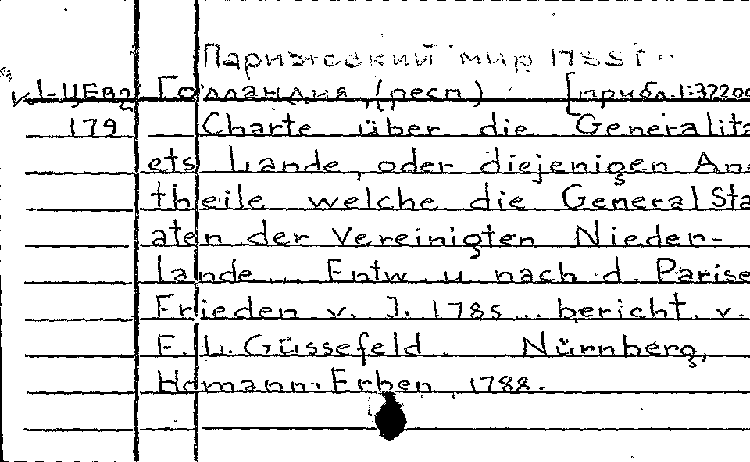 Парижский мир 1785 г.
Голландия (респ.) [прибл. 1:32200
179 Charte über die Generalita
ets Lande, oder diejenigen An
theile welche die General Sta
aten der Vereinigten Nieder-
lande... Entw. u. nach d. Parise
Frieden v. J. 1785... bericht. v.
F. L. Güssefeld. Nürnberg,
Homann. Erben, 1788.